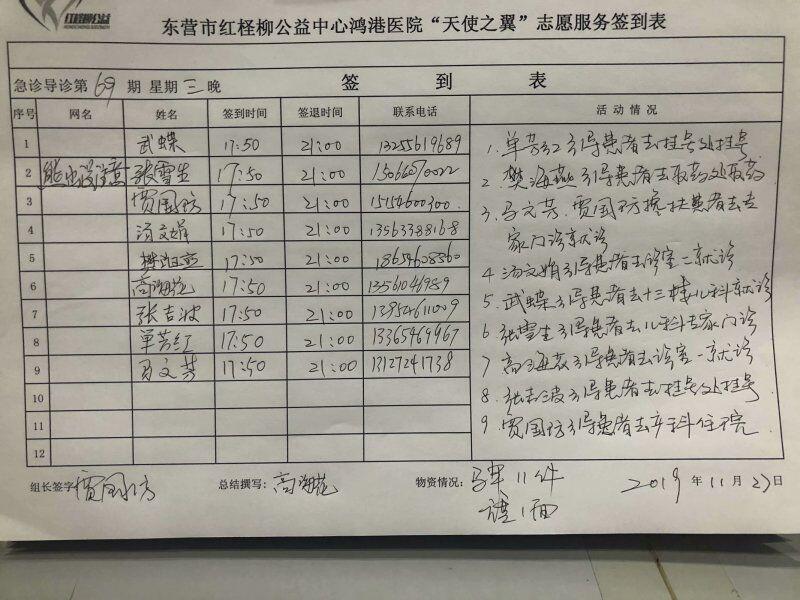 红柽柳公益
东营市红柽柳公益中心鸿港医院“天使之翼”志愿服务签到表
急诊导诊第 69 期 星期 三 晚 签 到 表
序号 网名 姓名 签到时间 签退时间 联系电话 活动情况
1 武蝶 17:50 21:00 13255619689
2 张雪生 17:50 21:00
3 贾国防 17:50 21:00 15154600300
4 汤文娟 17:50 21:00 13563388168
5 17:50 21:00 18654608860
6 高海花 17:50 21:00 13561046989
7 张吉波 17:50 21:00 13954611009
8 单芳红 17:50 21:00 13365469967
9 马文芳 17:50 21:00 13127241738
10
11
12
1. 单芳红引导患者去挂号处挂号
2. 樊海燕引导患者去取药处取药
3. 马文芳、贾国防搀扶患者去专
家门诊就诊
4 汤文娟引导患者去诊室二就诊
5. 武蝶引导患者去十三楼儿科就诊
6 张雪生引导患者去儿科专家门诊
7 高海花引导患者去诊室一就诊
8. 张吉波引导患者去挂号处挂号
9 贾国防引导患者去产科住院
组长签字 贾国防 总结撰写: 高海花 物资情况: 11件
1面
2019 年 11 月 27 日